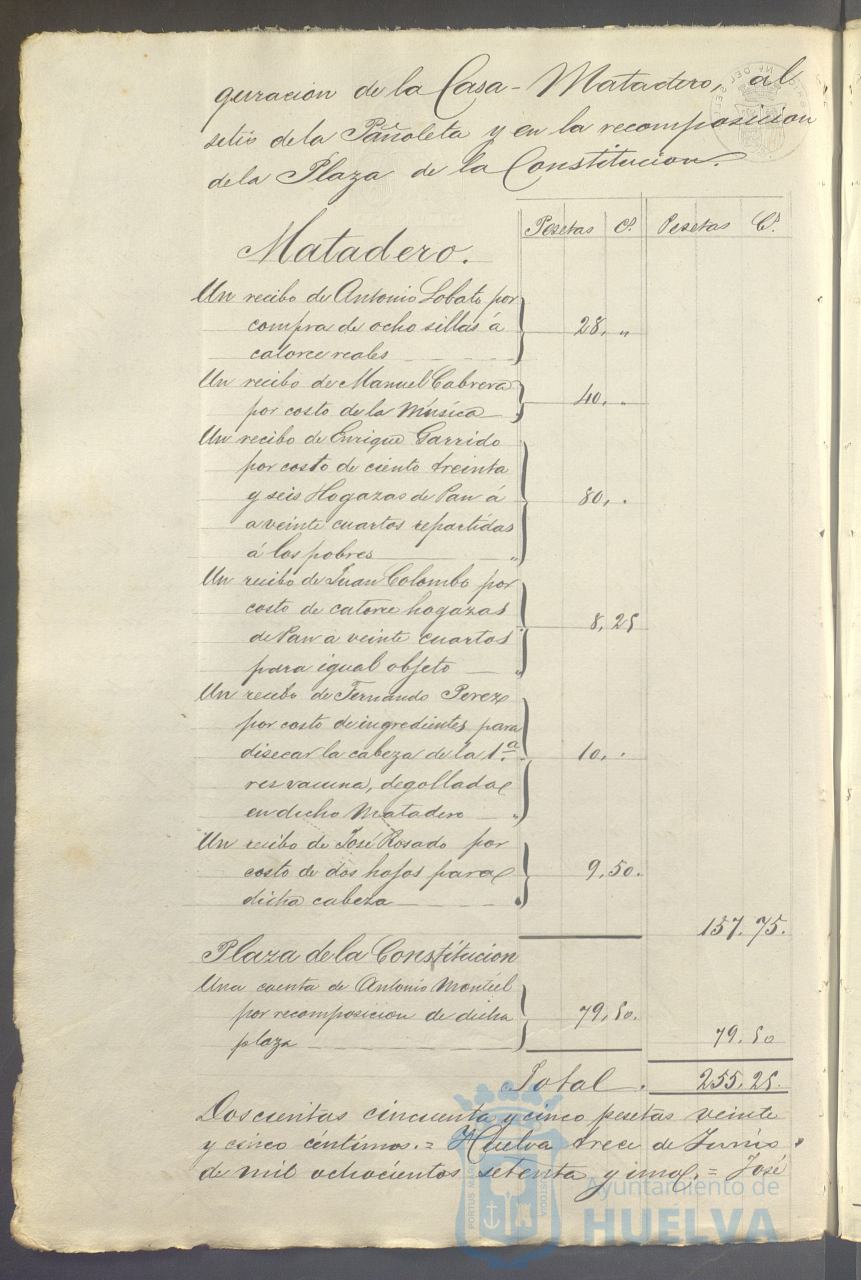 guracion de la Casa-Matadero, al
sitio de la Pañoleta y en la recomposicion
de la Plaza de la Constitucion.
Pesetas Cs. Pesetas Cs.
Matadero.
Un recibo de Antonio Lobato por
compra de ocho sillas á
catorce reales 28, "
Un recibo de Manuel Cabrera
por costo de la Música 40, "
Un recibo de Enrique Garrido
por costo de ciento treinta
y seis Hogazas de Pan á
a veinte cuartos repartidas
á los pobres 80, "
Un recibo de Juan Colombo por
costo de catorce hogazas
de Pan a veinte cuartos
para igual objeto 8,25
Un recibo de Fernando Perez
por costo de ingredientes para
disecar la cabeza de la 1.ª
res vacuna, degollada
en dicho Matadero 10, "
Un recibo de José Rosado por
costo de dos hojos para
dicha cabeza 9,50.
157.75.
Plaza de la Constitucion
Una cuenta de Antonio Montiel
por recomposicion de dicha
plaza 79,50. 79.50
Total. 255,25.
Doscientas cincuenta y cinco pesetas veinte
y cinco céntimos. = Huelva trece de Junio
de mil ochocientos setenta y uno. = José
PORTUS MARIS CUSTODIA
Ayuntamiento de
HUELVA